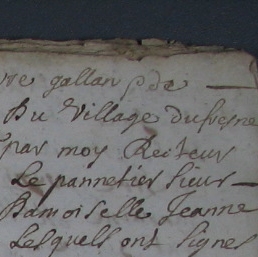 gallan p de
Du Village dufresne
par moy Recteur
Le pannetier sieur
Damoiselle Jeanne
Lesquels ont signes